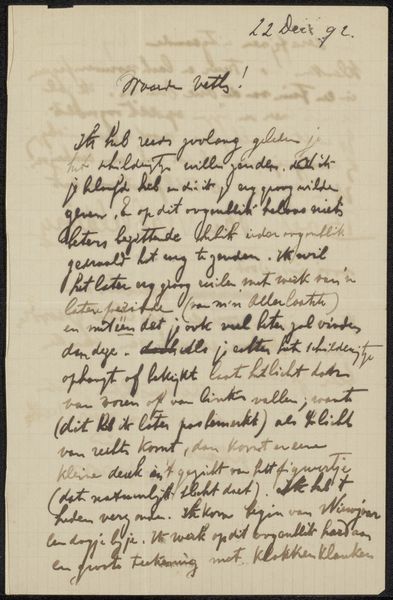 22 Dec 92.
Waarde Veth!
Ik heb reeds zoolang geleden je
het schilderijtje willen zenden, dat ik
je beloofd heb en dat ik je erg graag wilde
geven. En op dit oogenblik helaas niets
beters bezittende heb ik ieder oogenblik
gedraald het weg te zenden. Ik wil
het later erg graag ruilen met werk van 'n
latere periode (van m'n allerlaatste)
en met een dat je ook veel beter zal vinden
dan deze. als je echter het schilderijtje
ophangt of bekijkt laat het licht daar
van voren of van links vallen; want
(dit heb ik later pas bemerkt) als 't licht
van rechts komt, dan komt er eene
kleine deuk in 't gezicht van het figuurtje
(dat natuurlijk slecht doet). Ik heb 't
heden verzonden. Ik kom begin van Nieuwjaar
een dagje bij je. Ik werk op dit oogenblik hard aan
een groote teekening met klokken klanken